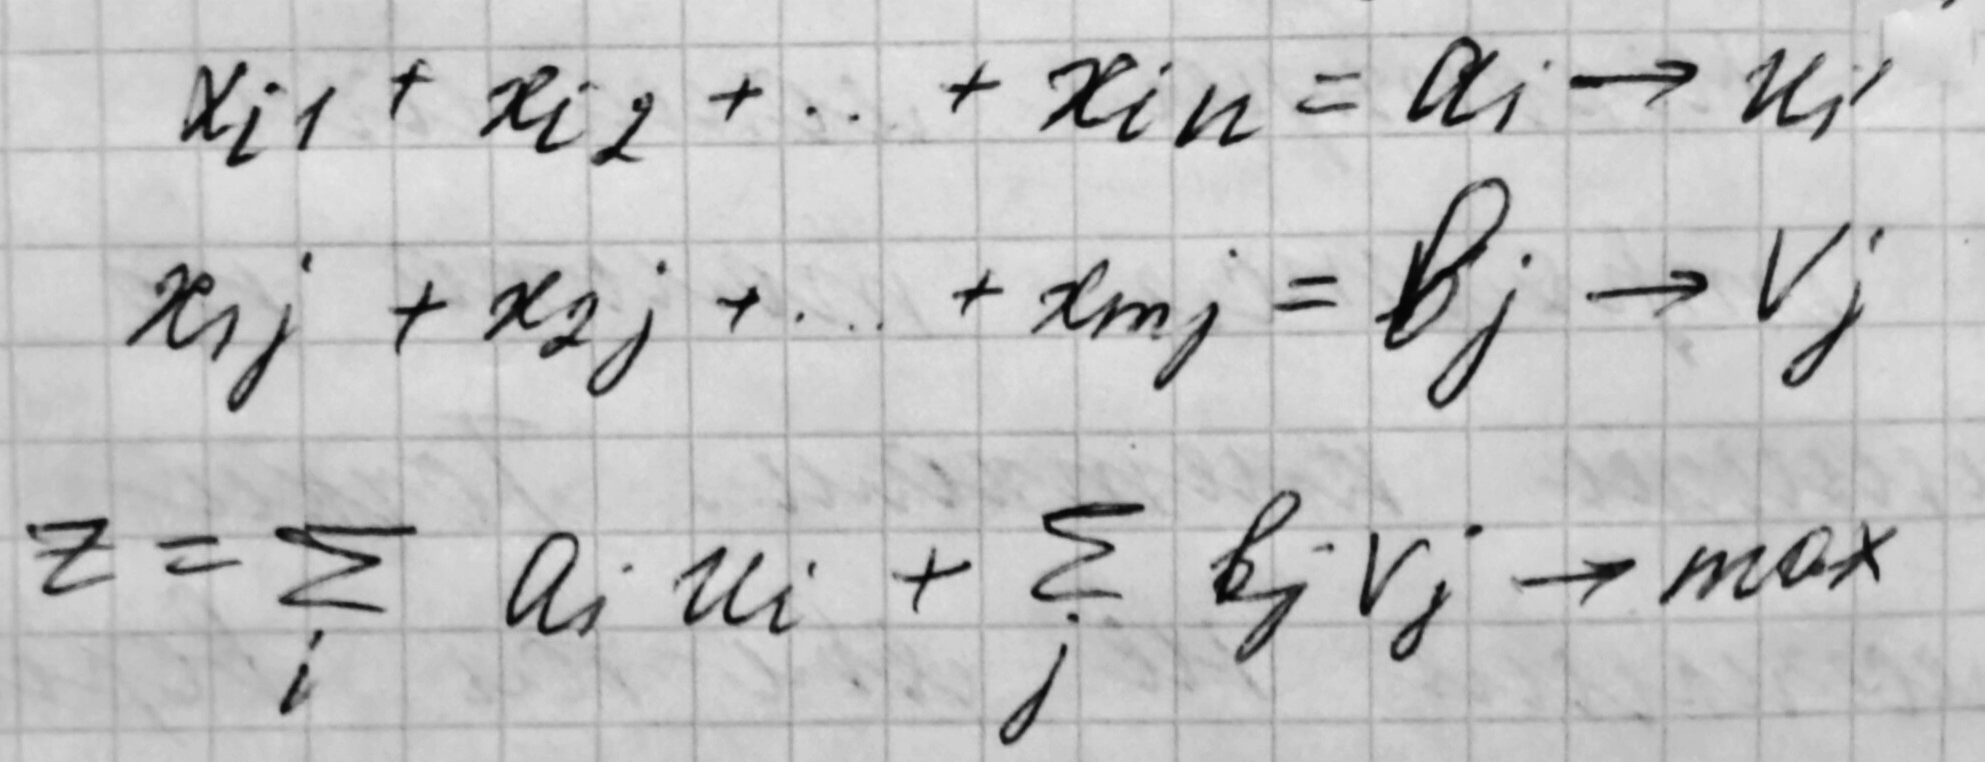 x_{i1} + x_{i2} + ... + x_{in} = a_i → u_i
x_{1j} + x_{2j} + ... + x_{mj} = b_j → v_j
z = ∑_i a_i u_i + ∑_j b_j v_j → max